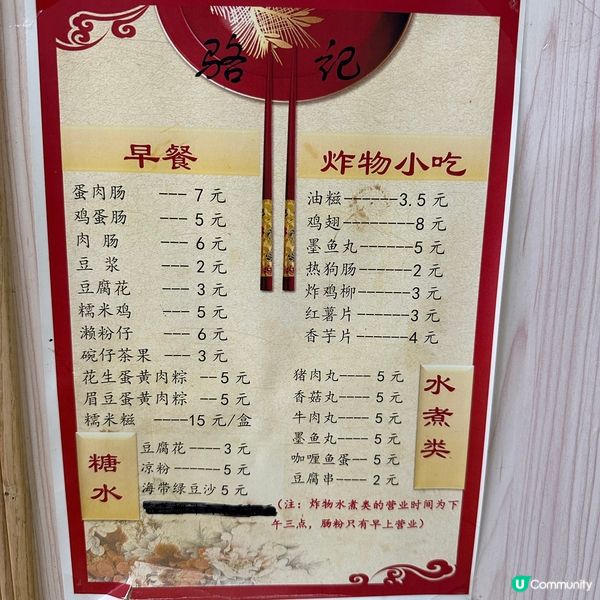 骆记
早餐
蛋肉肠 --- 7 元
鸡蛋肠 ---- 5 元
肉 肠 ---- 6 元
豆 浆 ---- 2 元
豆腐花 ---- 3 元
糯米鸡 ---- 5 元
濑粉仔 ---- 6 元
碗仔茶果 --- 3 元
花生蛋黄肉粽 --5 元
眉豆蛋黄肉粽 --5 元
糯米糍 ----15 元/盒
糖水
豆腐花----3 元
凉粉------5 元
海带绿豆沙 5 元
炸物小吃
油糍------3.5 元
鸡翅--------8 元
墨鱼丸------5 元
热狗肠------2 元
炸鸡柳------3 元
红薯片------3 元
香芋片------4 元
水煮类
猪肉丸----5 元
香菇丸----5 元
牛肉丸----5 元
墨鱼丸----5 元
咖喱鱼蛋--5 元
豆腐串----2 元
(注：炸物水煮类的营业时间为下
午三点，肠粉只有早上营业)
U Community